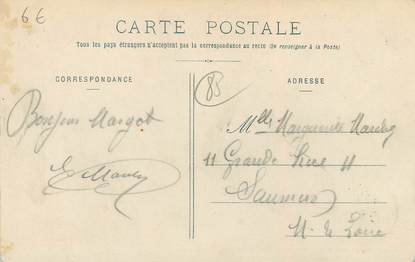 6€
CARTE POSTALE
Tous les pays étrangers n'acceptent pas la correspondance au recto (Se renseigner à la Poste)
CORRESPONDANCE
ADRESSE
85
Bonjour Margot
Melle Marguerite
11 Grande Rue 11
Saumur
M. & Loire